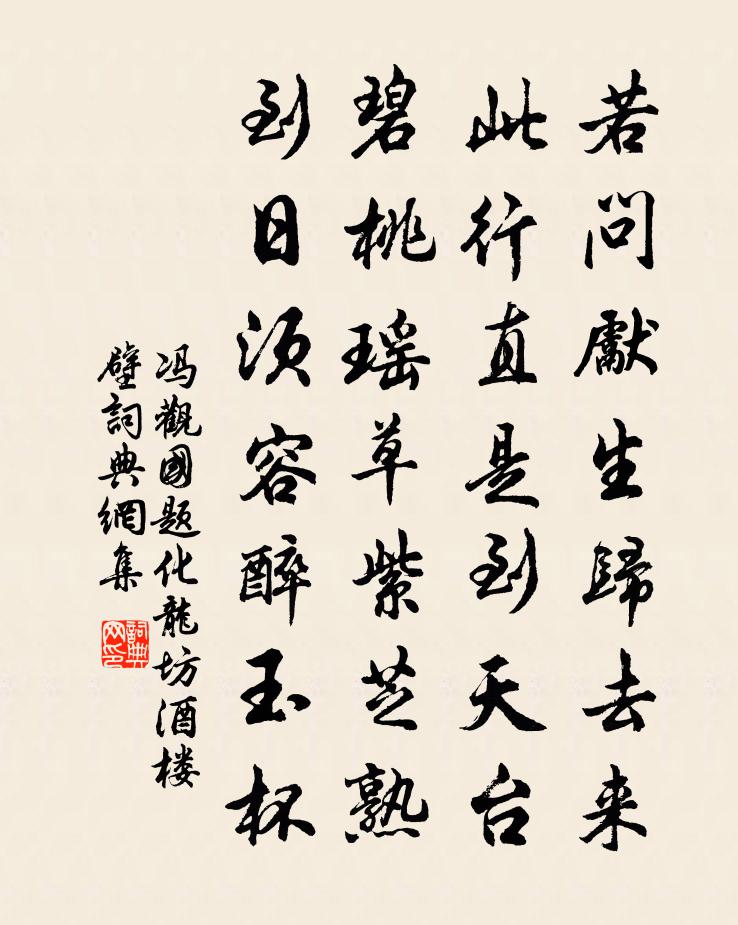 若問獻生歸去来
此行直是到天台
碧桃瑶草紫芝熟
到日须容醉玉杯
冯觀國题化龍坊酒楼
壁詞典網集
詞典网印